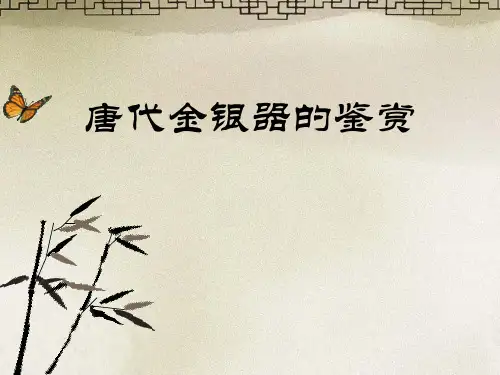 唐代金银器的鉴赏